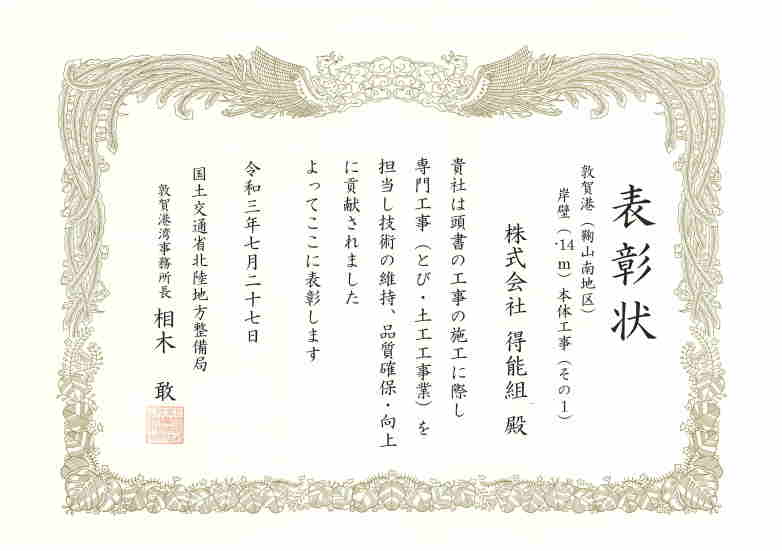 表彰状
敦賀港（鞠山南地区）
岸壁（-14m）本体工事（その１）
株式会社 得能組 殿
貴社は頭書の工事の施工に際し
専門工事（とび・土工工事業）を
担当し技術の維持、品質確保・向上
に貢献されました
よってここに表彰します
令和三年七月二十七日
国土交通省北陸地方整備局
敦賀港湾事務所長 相木 敢